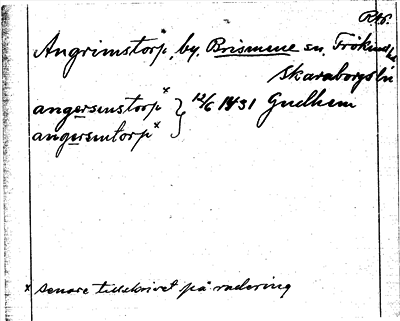 Rts.
Angrimstorp, by, Brismene sn, Frökinds hd
Skaraborgs län
angersmstorp x } 12/6 1431 Gudhem
angersmtorp x
x senare tillskrivet på radering